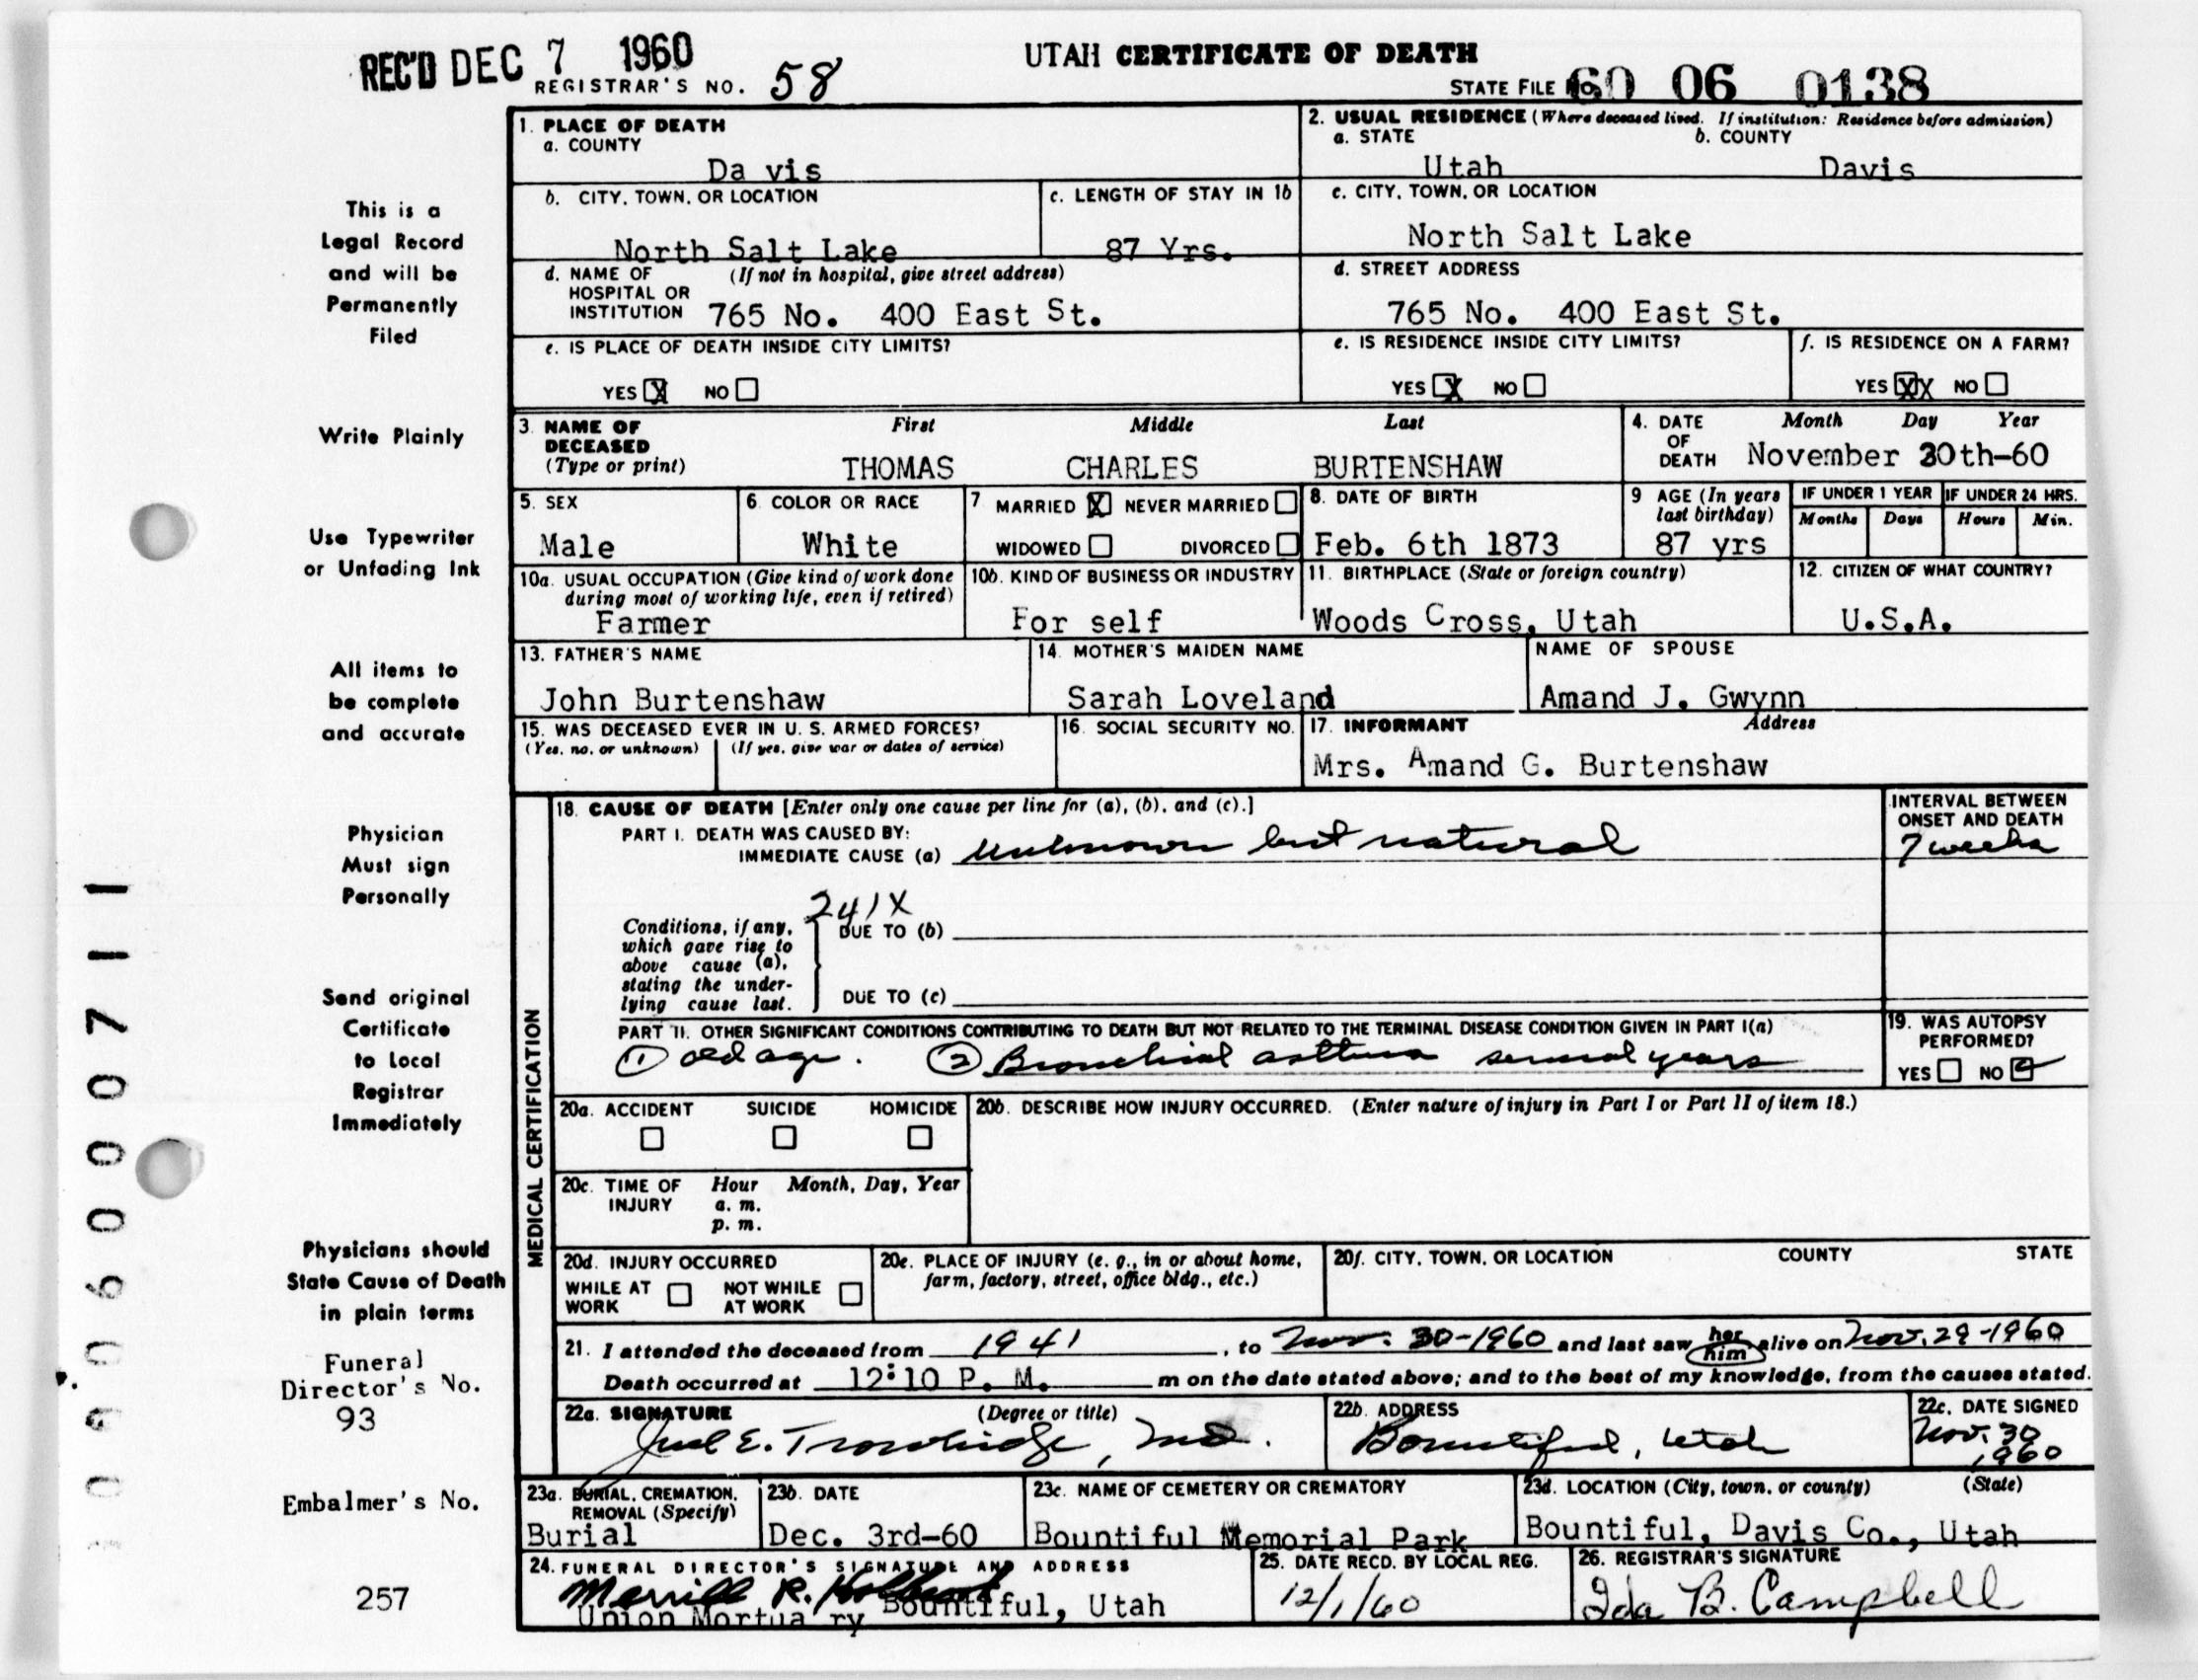 REC'D DEC 7 1960
UTAH CERTIFICATE OF DEATH
REGISTRAR'S NO. 58
STATE FILE No. 60 06 0138
This is a
Legal Record
and will be
Permanently
Filed
Write Plainly
Use Typewriter
or Unfading Ink
All items to
be complete
and accurate
Physician
Must sign
Personally
Send original
Certificate
to Local
Registrar
Immediately
Physicians should
State Cause of Death
in plain terms
Funeral
Director's No.
93
Embalmer's No.
257
1. PLACE OF DEATH
a. COUNTY
Da vis
2. USUAL RESIDENCE (Where deceased lived. If institution: Residence before admission)
a. STATE b. COUNTY
Utah Davis
b. CITY, TOWN, OR LOCATION
North Salt Lake
c. LENGTH OF STAY IN 1b
87 Yrs.
c. CITY, TOWN, OR LOCATION
North Salt Lake
d. NAME OF (If not in hospital, give street address)
HOSPITAL OR
INSTITUTION 765 No. 400 East St.
d. STREET ADDRESS
765 No. 400 East St.
e. IS PLACE OF DEATH INSIDE CITY LIMITS?
YES X NO
e. IS RESIDENCE INSIDE CITY LIMITS?
YES X NO
f. IS RESIDENCE ON A FARM?
YES XX NO
3. NAME OF DECEASED First Middle Last
(Type or print) THOMAS CHARLES BURTENSHAW
4. DATE OF DEATH Month Day Year
November 30th-60
5. SEX
Male
6. COLOR OR RACE
White
7 MARRIED X NEVER MARRIED
WIDOWED DIVORCED
8. DATE OF BIRTH
Feb. 6th 1873
9 AGE (In years
last birthday)
87 yrs
IF UNDER 1 YEAR IF UNDER 24 HRS.
Months Days Hours Min.
10a. USUAL OCCUPATION (Give kind of work done
during most of working life, even if retired)
Farmer
10b. KIND OF BUSINESS OR INDUSTRY
For self
11. BIRTHPLACE (State or foreign country)
Woods Cross, Utah
12. CITIZEN OF WHAT COUNTRY?
U.S.A.
13. FATHER'S NAME
John Burtenshaw
14. MOTHER'S MAIDEN NAME
Sarah Loveland
NAME OF SPOUSE
Amand J. Gwynn
15. WAS DECEASED EVER IN U. S. ARMED FORCES?
(Yes, no, or unknown) (If yes, give war or dates of service)
16. SOCIAL SECURITY NO.
17. INFORMANT Address
Mrs. Amand G. Burtenshaw
MEDICAL CERTIFICATION
18. CAUSE OF DEATH [Enter only one cause per line for (a), (b), and (c).]
INTERVAL BETWEEN
ONSET AND DEATH
PART I. DEATH WAS CAUSED BY:
IMMEDIATE CAUSE (a) unknown but natural
7 weeks
241X
Conditions, if any,
which gave rise to
above cause (a),
stating the under-
lying cause last.
DUE TO (b)
DUE TO (c)
PART II. OTHER SIGNIFICANT CONDITIONS CONTRIBUTING TO DEATH BUT NOT RELATED TO THE TERMINAL DISEASE CONDITION GIVEN IN PART I(a)
1 old age. 2 Bronchial asthma several years
19. WAS AUTOPSY
PERFORMED?
YES NO
20a. ACCIDENT SUICIDE HOMICIDE
20b. DESCRIBE HOW INJURY OCCURRED. (Enter nature of injury in Part I or Part II of item 18.)
20c. TIME OF INJURY Hour Month, Day, Year
a. m.
p. m.
20d. INJURY OCCURRED
WHILE AT WORK NOT WHILE AT WORK
20e. PLACE OF INJURY (e. g., in or about home,
farm, factory, street, office bldg., etc.)
20f. CITY, TOWN, OR LOCATION COUNTY STATE
21. I attended the deceased from 1941, to Nov. 30-1960 and last saw her him alive on Nov. 29-1960
Death occurred at 12:10 P. M. m on the date stated above; and to the best of my knowledge, from the causes stated.
22a. SIGNATURE (Degree or title)
E. Trowbridge, MD.
22b. ADDRESS
Bountiful, Utah
22c. DATE SIGNED
Nov. 30
1960
23a. BURIAL, CREMATION,
REMOVAL (Specify)
Burial
23b. DATE
Dec. 3rd-60
23c. NAME OF CEMETERY OR CREMATORY
Bountiful Memorial Park
23d. LOCATION (City, town, or county) (State)
Bountiful, Davis Co., Utah
24. FUNERAL DIRECTOR'S SIGNATURE AND ADDRESS
Merrill R. Holbrook
Union Mortua ry Bountiful, Utah
25. DATE RECD. BY LOCAL REG.
12/1/60
26. REGISTRAR'S SIGNATURE
Ida B. Campbell